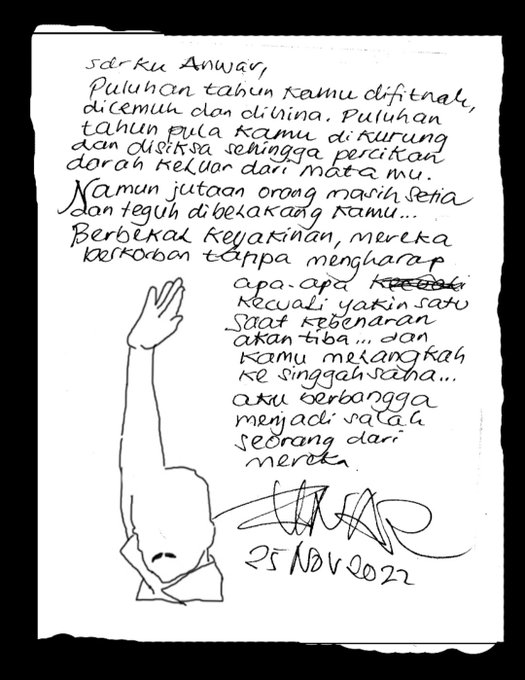 sdrku Anwar,
Puluhan tahun kamu difitnah,
dicemuh dan dihina. Puluhan
tahun pula kamu dikurung
dan disiksa sehingga percikan
darah keluar dari mata mu.
Namun jutaan orang masih setia
dan teguh dibelakang kamu...
Berbekal keyakinan, mereka
berkorban tanpa mengharap
apa-apa
kecuali yakin satu
saat kebenaran
akan tiba... dan
kamu melangkah
ke singgahsana...
aku berbangga
menjadi salah
seorang dari
mereka.
25 NOV 2022